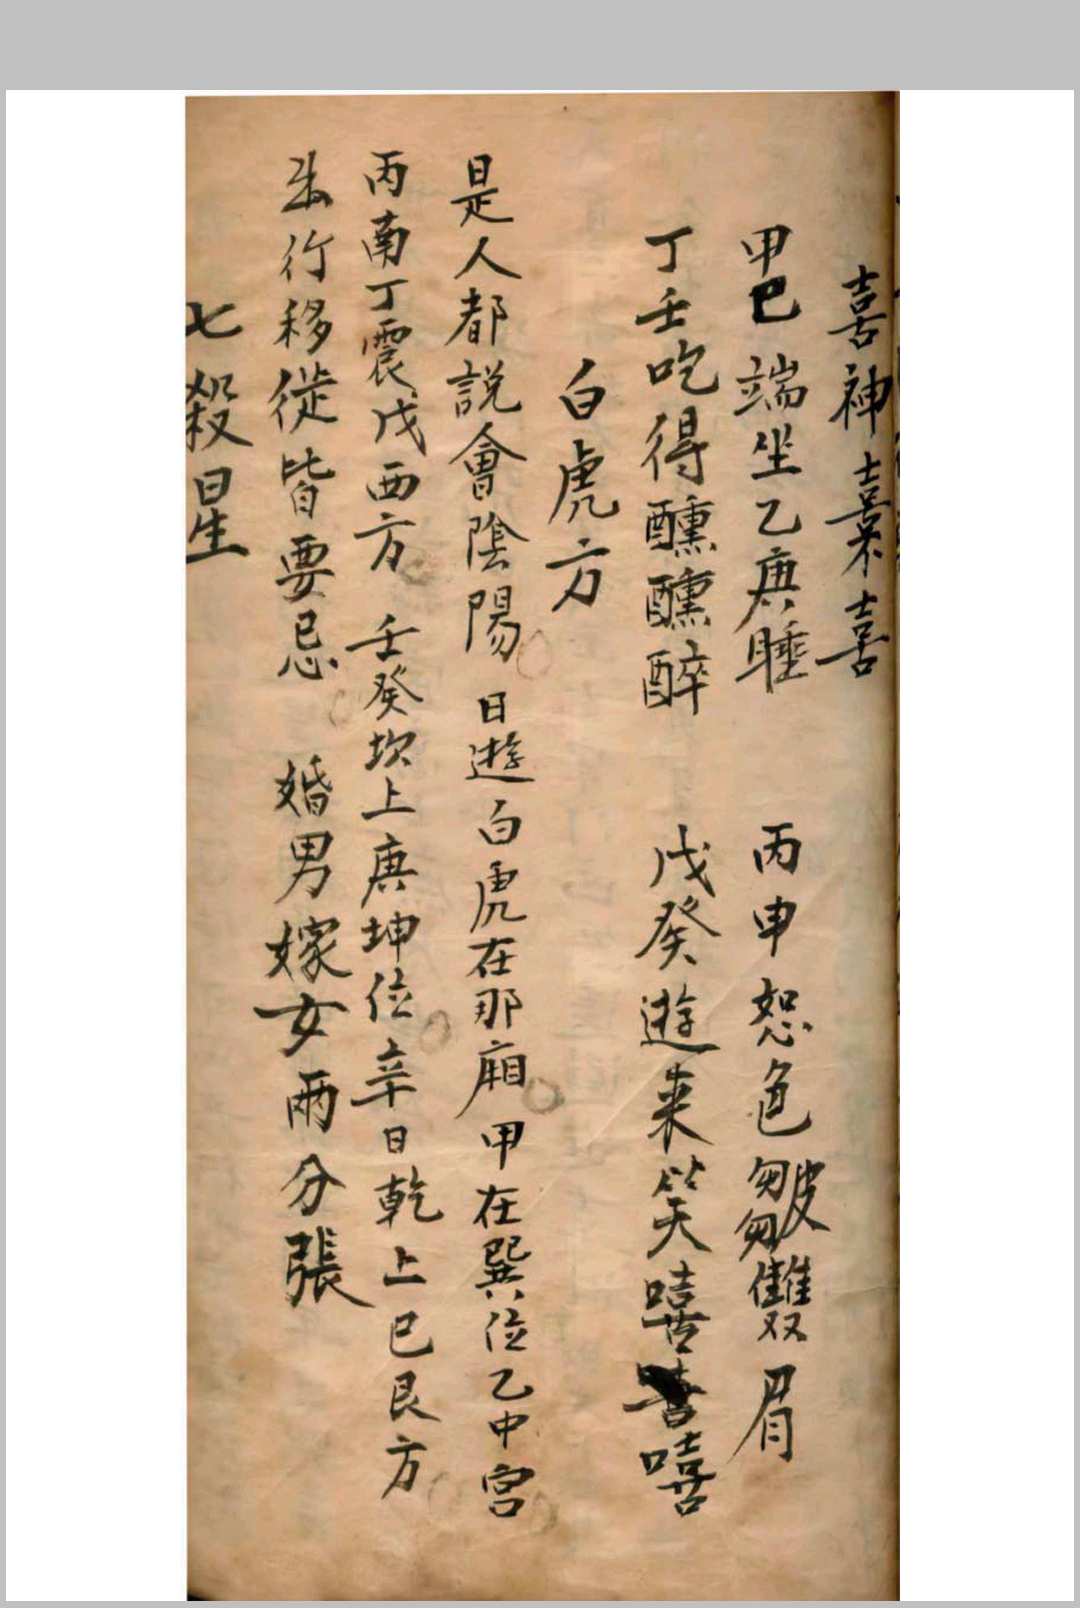 喜神熹喜
甲巳端坐乙庚睡 丙申恕色皺雙眉
丁壬吃得醺醺醉 戊癸遊来笑嘻嘻
白虎方
是人都説會陰陽 日遊白虎在那廂 甲在巽位乙中宮
丙南丁震戊西方 壬癸坎上庚坤位 辛日乾上巳艮方
出行移徙皆要忌 婚男嫁女兩分張
七殺星